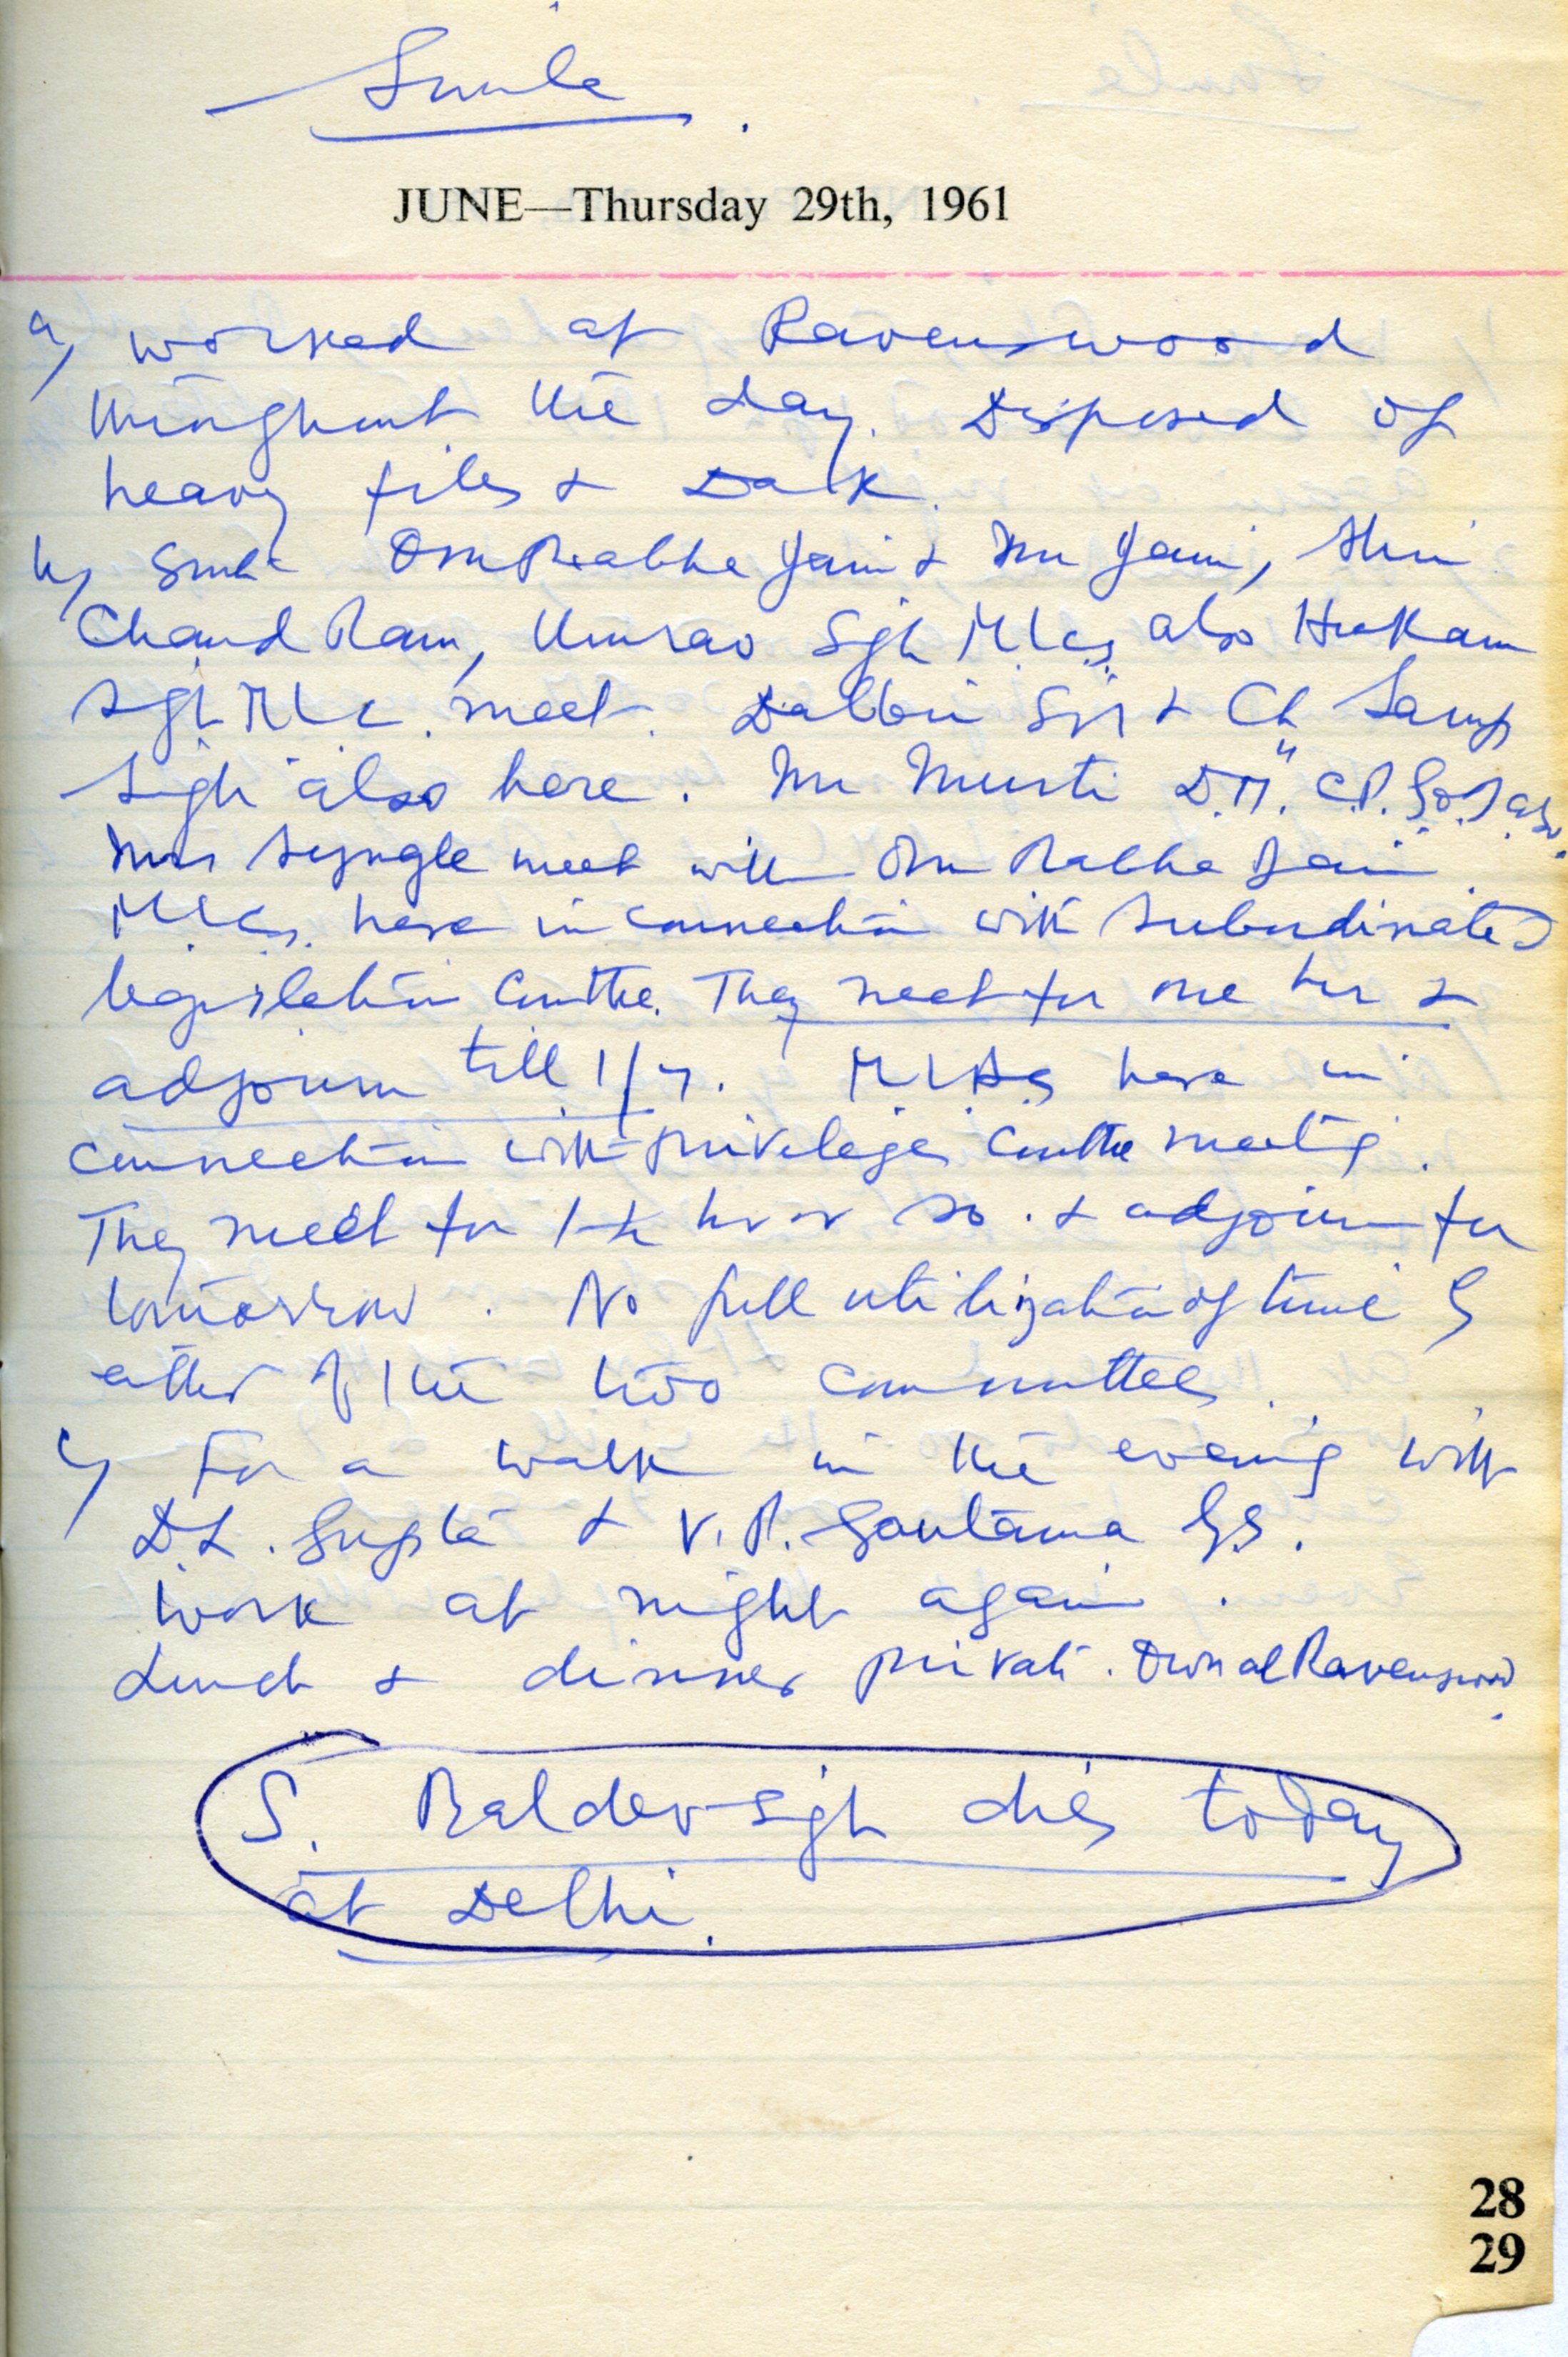 Simla.
JUNE—Thursday 29th, 1961
a) Worked at Ravenswood
throughout the day. Disposed of
heavy files & Dak.
b) Smt Om Prabha Jain & Mr Jain, Shri
Chand Ram, Umrao Sgh M.L.Cs, also Hukam
Sgh M.L.C. meet. Dalbir & Ch Sarup
Singh also here. Mr Murti D.M. C.P.
Mrs meet with Om Prabha Jain
M.L.Cs. here in connection with Subordinate
legislation Comttee. They meet for one hr &
adjourn till 1/7. M.L.As here in
connection with privileges Comttee meeting.
They meet for 1½ hr or so. & adjourn for
tomorrow. No full utilization of time by
either of the two committees.
c) For a walk in the evening with
D.L. Gupta & V.P. Gautama
Work at night again.
Lunch & dinner private. Own at Ravenswood.
S. Baldev Sgh dies today
at Delhi.
28
29